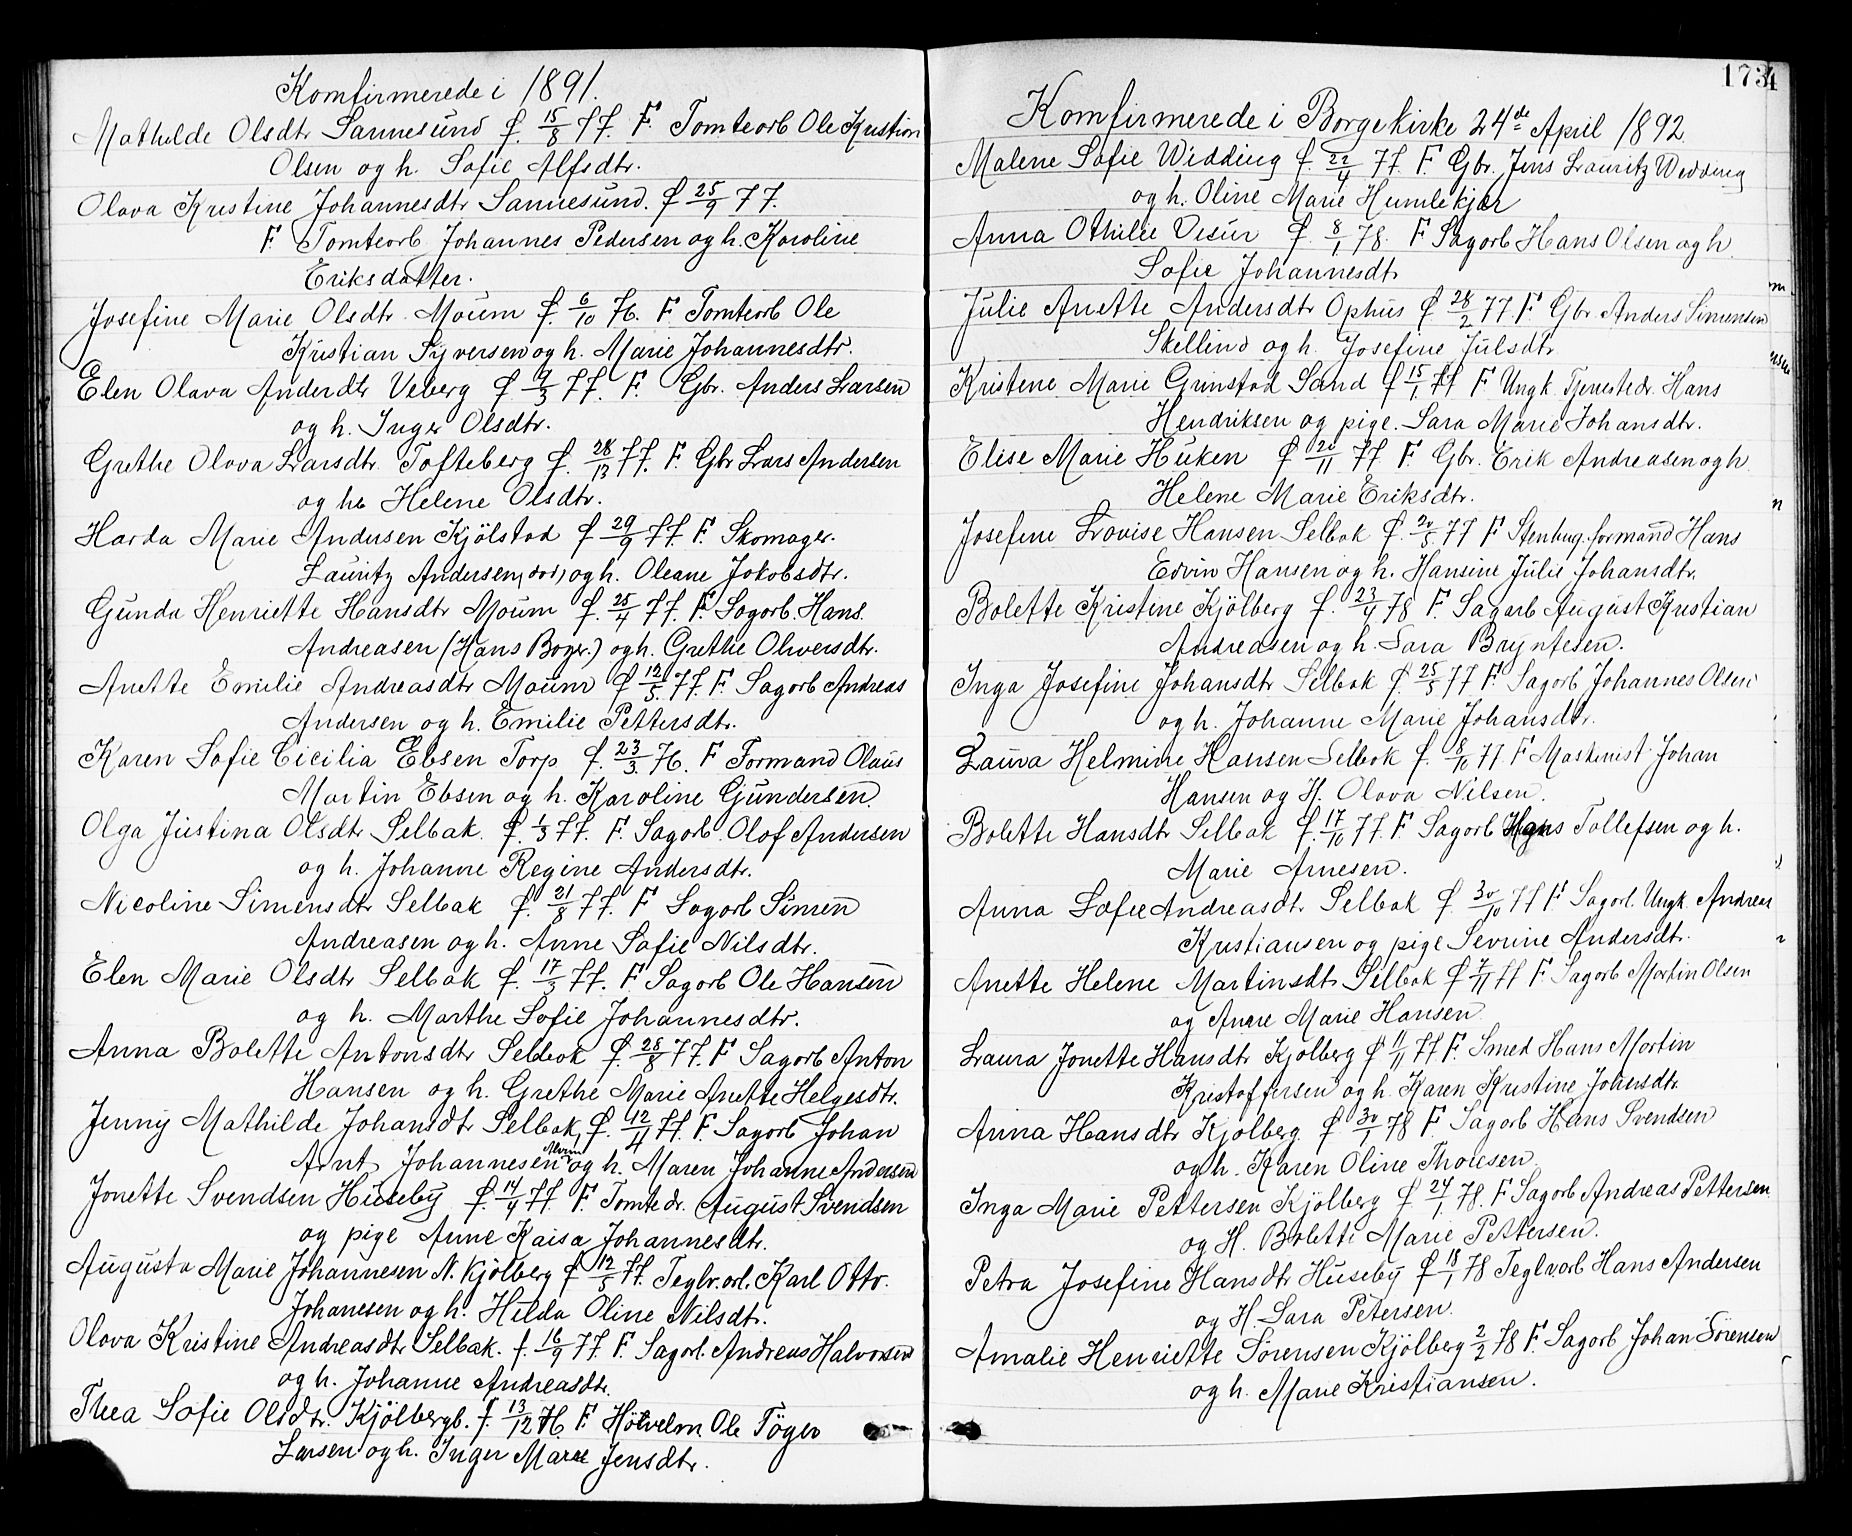 Komfirmerede i 1891.
Mathilde Olsdtr Sannesund f. 15/8 77. F. Tomteorb Ole Kristian
Olsen og h. Sofie Alfsdtr.
Olava Kristine Johannesdtr Sannesund. f 25/9 77.
F. Tomteorb Johannes Pedersen og h. Karoline
Eriksdatter.
Josefine Marie Olsdtr Moum f. 6/10 76. F Tomteorb Ole
Kristian Syversen og h. Marie Johannesdtr.
Elen Olava Anderdtr Veberg f 9/3 77. F. Gbr. Anders Larsen
og h. Inger Olsdtr.
Grethe Olava Larsdtr Tofteberg f. 28/12 77. F. Gbr Lars Andersen
og h Helene Olsdtr.
Harda Marie Andersen Kjölstad f 29/9 77. F. Skomager.
Lauritz Andersen, död, og h. Oleane Jokobsdtr.
Gunda Henriette Hansdtr Moum f. 25/4 77. F. Sagorb. Hans
Andreasen (Hans Boger.) og h. Grethe Oliversdtr.
Anette Emilie Andreasdtr Moum f 12/5 77. F. Sagorb Andreas
Andersen og h. Emilie Pettersdtr.
Karen Sofie Cicilia Ebsen Torp f. 23/3 76. F Formand Olaus
Martin Ebsen og h. Karoline Gundersen.
Olga Justina Olsdtr Selbak. f. 1/3 77. F. Sagorb Olof Andersen
og h. Johanne Regine Andersdtr.
Nicoline Simensdtr Selbak f. 21/8 77. F Sagorb Simen
Andreasen og h. Anne Sofie Nilsdtr.
Elen Marie Olsdtr Selbak f. 17/3 77. F Sagorb Ole Hansen
og h. Marthe Sofie Johannesdtr.
Anna Bolette Antonsdtr Selbak f. 28/8 77. F Sagorb Anton
Hansen og h. Grethe Marie Anette Helgesdtr.
Jenny Mathilde Johansdtr Selbak, f. 12/4 77. F. Sagorb Johan
Arnt Johannesen og h. Maren Johanne Andersen
Jonette Svendsen Huseby f. 14/4 77. F. Tomtedr. August Svendsen
og pige Anne Kaisa Johannesdtr.
Augusta Marie Johannesen N. Kjölberg f 12/5 77. Teglv.orb. Karl Otto
Johanesen og h. Hilda Oline Nilsdtr.
Olava Kristine Andreasdtr Selbak. f. 16/9 77. F. Sagorb. Andreas Halvorsen
og h. Johanne Andreasdtr.
Thea Sofie Olsdtr. Kjölbergb. f. 13/12 76. F. Ole Töger
Larsen og h. Inger Marie Jensdtr.
1734
Komfirmerede i Borgekirke 24de April 1892
Malene Sofie Wedding f. 22/4 77. F Gbr. Jens Lauritz Wedding
og h. Oline Marie Humlekjær
Anna Othilie Visur f. 8/1 78. F Sagorb Hans Olsen og h
Sofie Johannesdtr
Julie Anette Andersdtr Ophus f 28/2 77 F Gbr. Anders Simensen
Skellind og h. Josefine Julsdtr
Kristene Marie Grinstad Sand f 15/1 77 F Ungk Tjenestedr. Hans
Hendriksen og pige. Sara Marie Johansdtr.
Elise Marie Huken f 20/11 77 F. Gbr. Erik Andreasen og h
Helene Marie Eriksdtr.
Josefine Lovise Hansen Selbak f. 20/5 77 F Stenhug. formand Hans
Edvin Hansen og h. Hansine Julie Johansdtr.
Bolette Kristine Kjölberg f. 23/4 78 F. Sagarb August Kristian
Andreasen og h. Sara Bryntesen.
Inga Josefine Johansdtr Selbak f. 25/5 77 F Sagorb Johannes Olsen
og h. Johanne Marie Johansdtr.
Laura Helmine Hansen Selbak f. 8/10 77. F Maskinist Johan
Hansen og H. Olava Nilsen.
Bolette Hansdtr Selbak f. 17/10 77. F Sagorb Hans Tollefsen og h.
Marie Arnesen.
Anna Sofie Andreasdtr Selbak f. 30/10 77 F Sagorb. Ungk. Andreas
Kristiansen og pige Sevrine Andersdtr.
Anette Helene Martinsdtr Selbak f 7/11 77 F. Sagorb Martin Olsen
og Anne Marie Hansen
Laura Jonette Hansdtr Kjolberg f 11/11 77 F. Smed Hans Martin
Kristoffersen og h. Karen Kristine Johansdtr.
Anna Hansdtr Kjolberg f 30/1 78 F. Sagorb Hans Svendsen
og h. Karen Oline Thoresen
Inga Marie Pettersen Kjölberg f 24/1 78. F Sagorb Andreas Pettersen
og H. Bolette Marie Pettersen.
Petra Josefine Hansdtr Huseby f 18/1 78 Teglvorb Hans Andersen
og H. Sara Petersen.
Amalie Henriette Sörensen Kjölberg 2/2 78 F. Sagorb Johan Sörensen
og h. Marie Kristiansen.